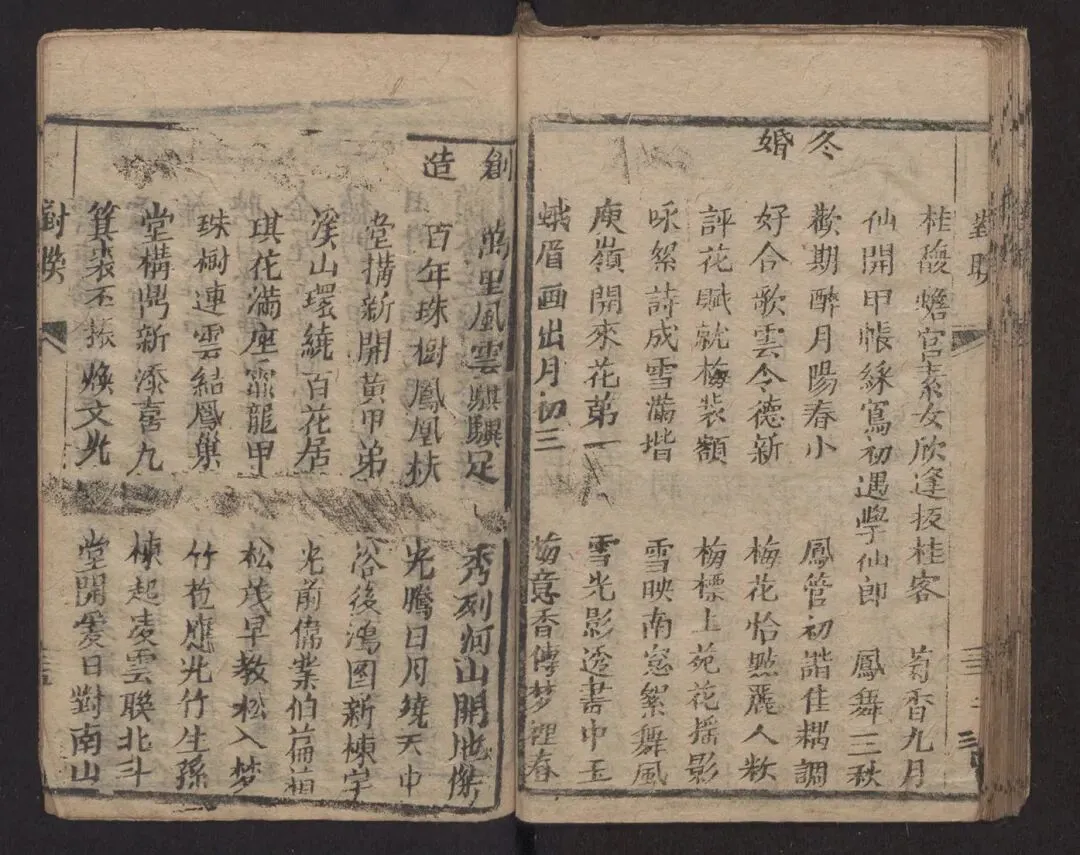 桂馥蟾宮素女欣逢扳桂客 菊香九月
仙開甲帳綵鸞初遇學仙郎 鳳舞三秋
冬婚
歡期醉月陽春小 鳳管初諧佳耦調
好合歌雲令德新 梅花恰點麗人粧
評花賦就梅裝額 梅標上苑花搖影
咏絮詩成雪滿堦 雪映南窓絮舞風
庾嶺開來花第一 雪光影透書中玉
蛾眉画出月初三 梅意香傳梦裡春
創造
萬里風雲騏驥足 秀列河山開地傑
百年珠樹鳳凰扶 光騰日月繞天中
堂搆新開黃甲弟 浴後鴻圖新棟宇
溪山環繞百花居 光前偉業伯
琪花滿座龍甲 松茂早教松入梦
珠樹連雲結鳳巢 竹苞應光竹生孫
堂構鼎新添喜九 棟起凌雲聯北斗
箕裘丕振煥文光 堂開愛日對南山
對聯